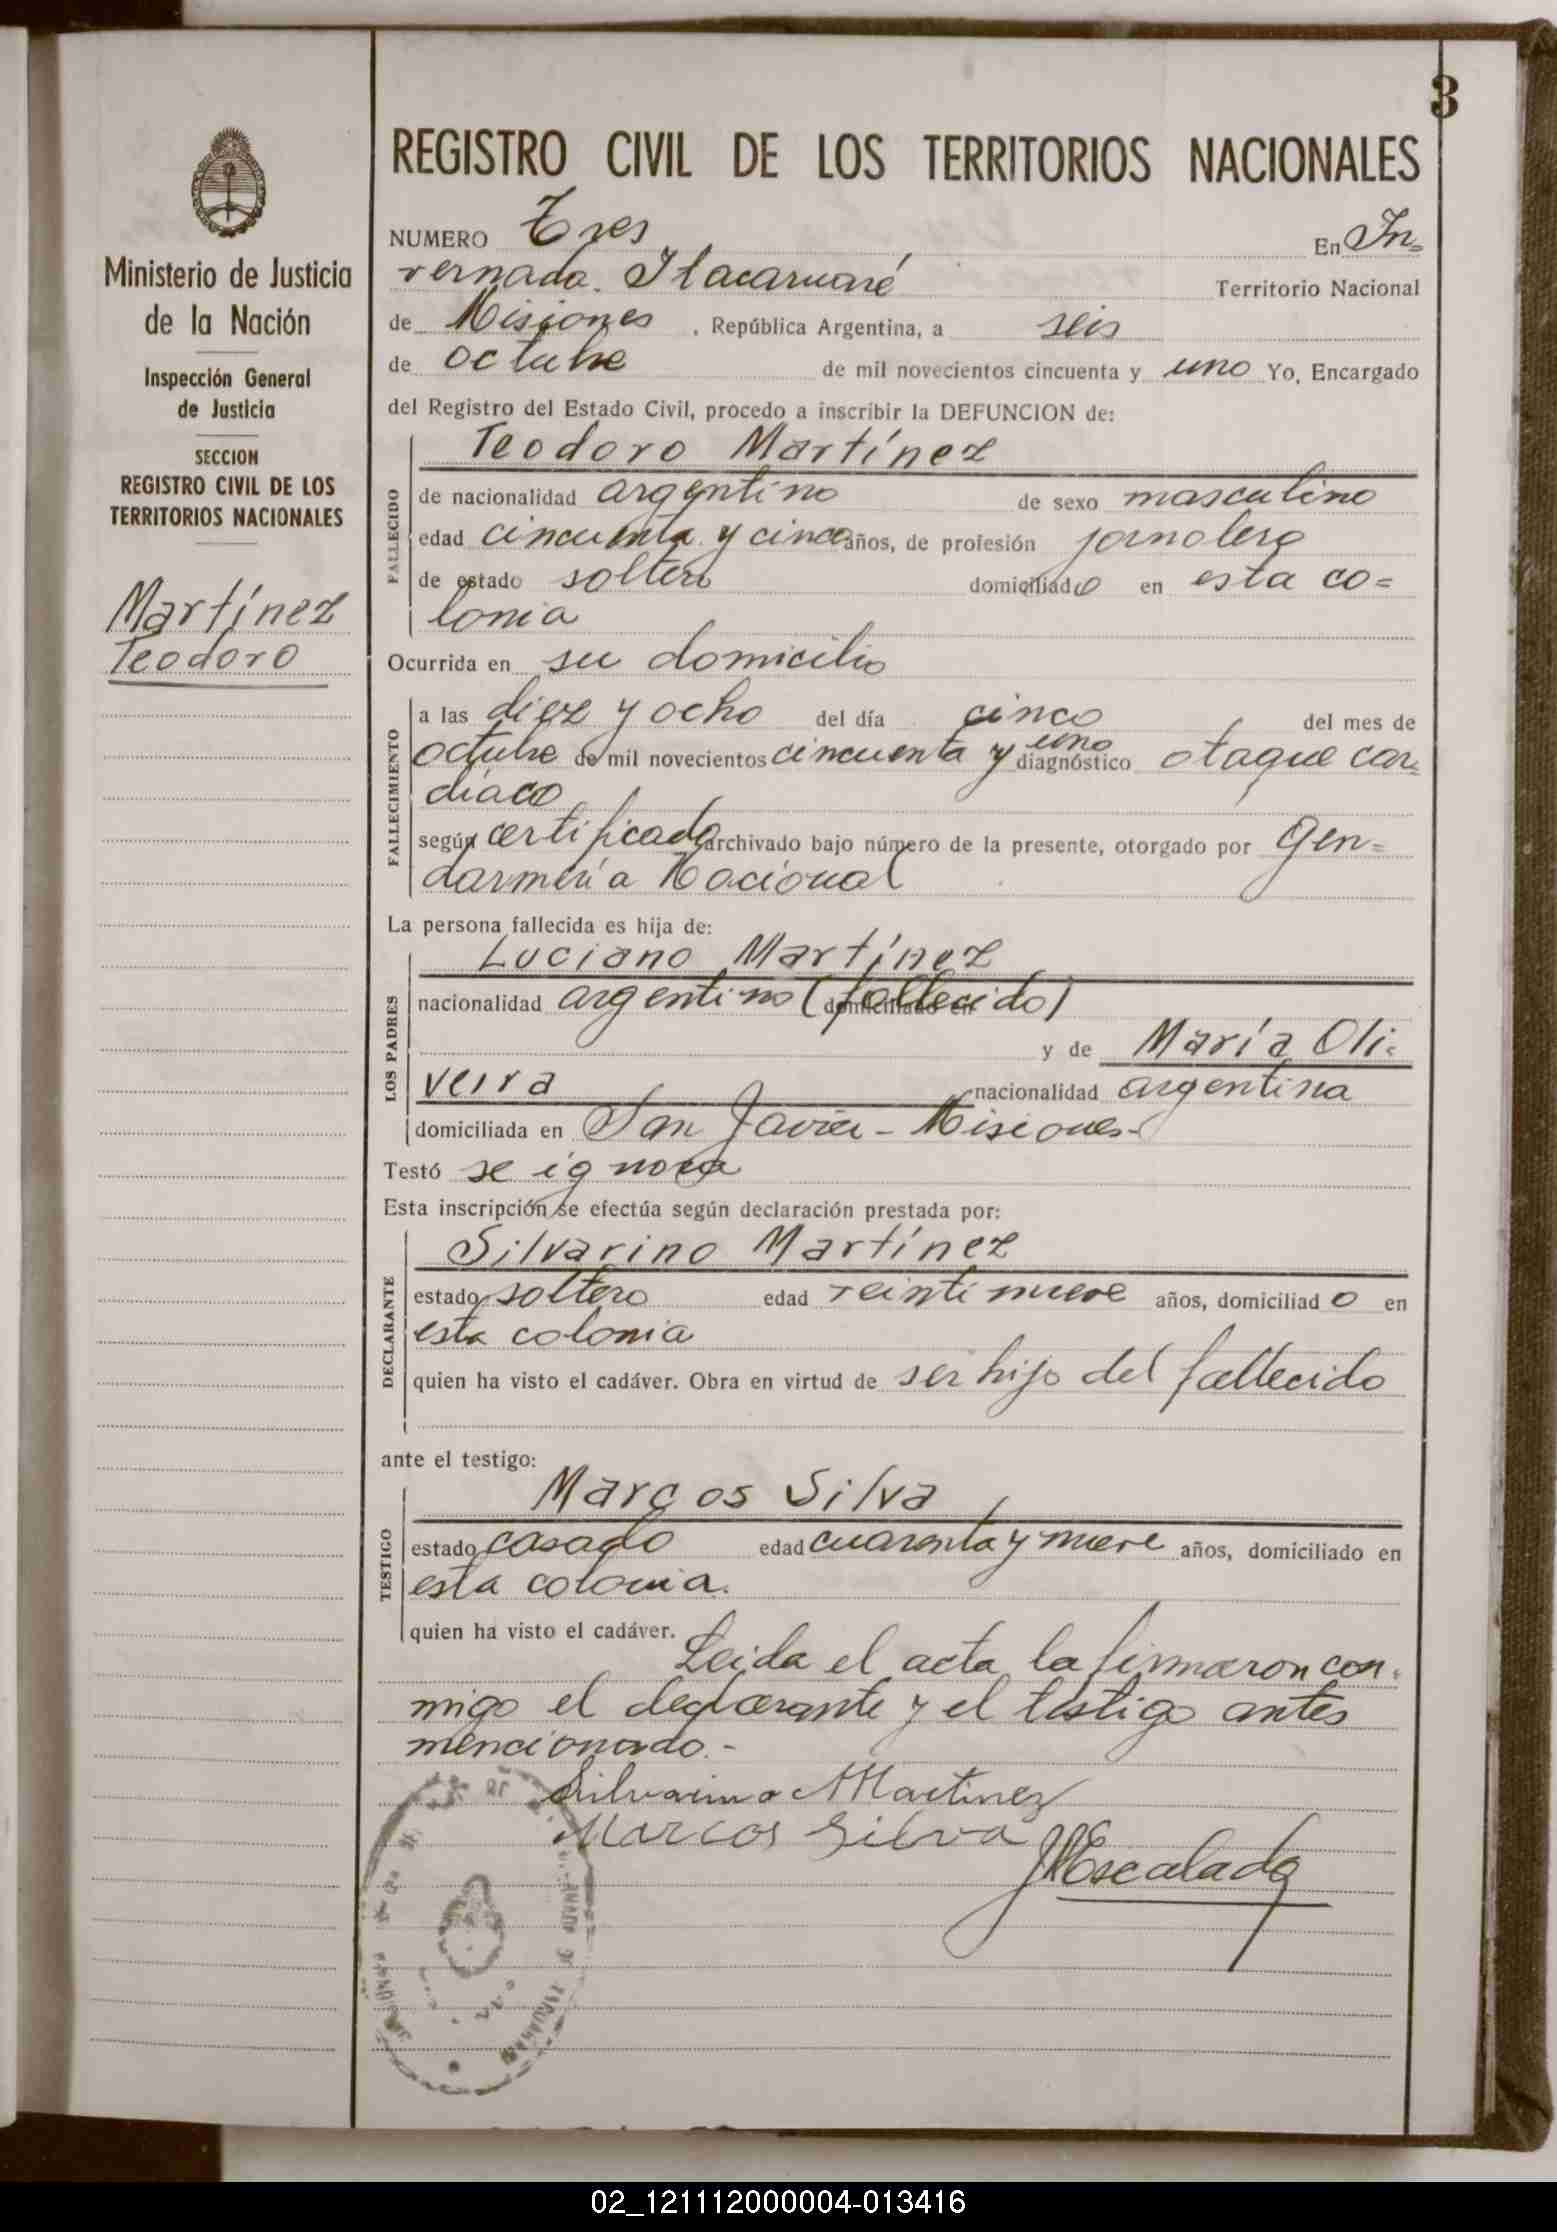 3
Ministerio de Justicia
de la Nación
Inspección General
de Justicia
SECCION
REGISTRO CIVIL DE LOS
TERRITORIOS NACIONALES
Martínez
Teodoro
REGISTRO CIVIL DE LOS TERRITORIOS NACIONALES
NUMERO Tres En In=
vernada Itacaruaré Territorio Nacional
de Misiones, República Argentina, a seis
de octubre de mil novecientos cincuenta y uno Yo, Encargado
del Registro del Estado Civil, procedo a inscribir la DEFUNCION de:
FALLECIDO
Teodoro Martínez
de nacionalidad argentino de sexo masculino
edad cincuenta y cinco años, de profesión jornalero
de estado soltero domiciliado en esta co=
lonia
Ocurrida en su domicilio
FALLECIMIENTO
a las diez y ocho del día cinco del mes de
octubre de mil novecientos cincuenta y uno diagnóstico ataque car=
díaco
según certificado archivado bajo número de la presente, otorgado por Gen=
darmería Nacional
La persona fallecida es hija de:
LOS PADRES
Luciano Martínez
nacionalidad argentino (fallecido) domiciliado en
y de María Oli=
veira nacionalidad argentina
domiciliada en San Javier - Misiones-
Testó se ignora
Esta inscripción se efectúa según declaración prestada por:
DECLARANTE
Silvarino Martínez
estado soltero edad veintinueve años, domiciliado en
esta colonia
quien ha visto el cadáver. Obra en virtud de ser hijo del fallecido
ante el testigo:
TESTIGO
Marcos Silva
estado casado edad cuarenta y nueve años, domiciliado en
esta colonia.
quien ha visto el cadáver. Leida el acta la firmaron con=
migo el declarante y el testigo antes
mencionado.-
Silvarino Martinez
Marcos Silva
Escalada
02_121112000004-013416